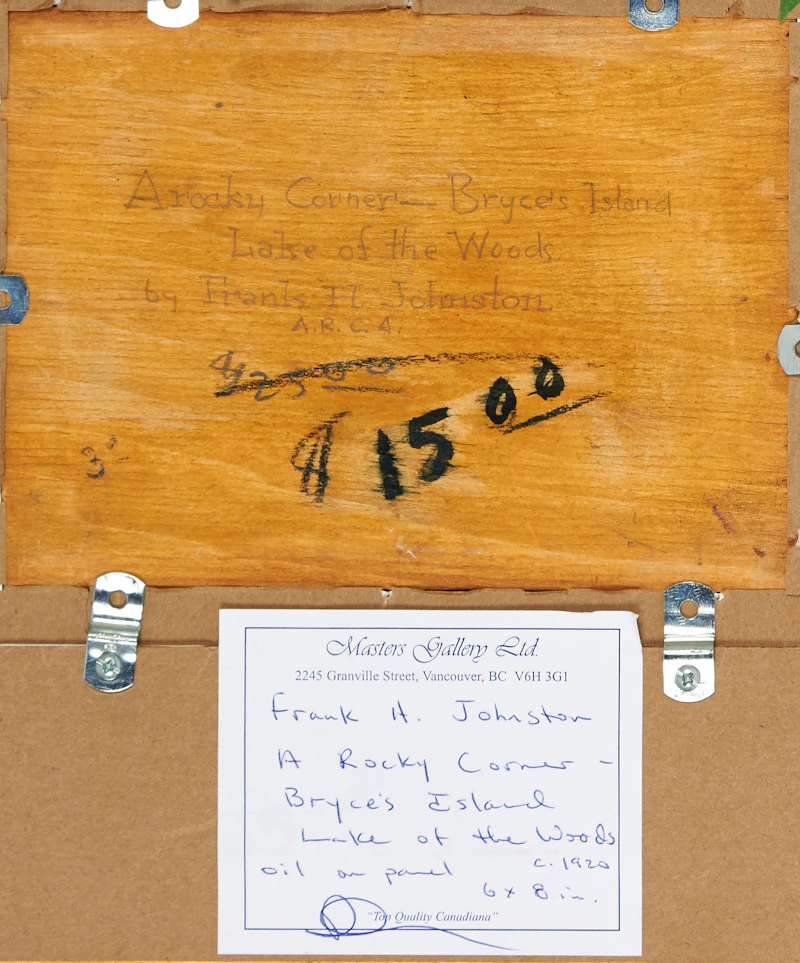 A rocky Corner — Bryce's Island
Lake of the Woods
by Frank H. Johnston
A.R.C.A.
$25 00
$15 00
Masters Gallery Ltd.
2245 Granville Street, Vancouver, BC V6H 3G1
Frank H. Johnston
A Rocky Corner -
Bryce's Island
Lake of the Woods
oil on panel c. 1920
6 x 8 in.
"Top Quality Canadiana"